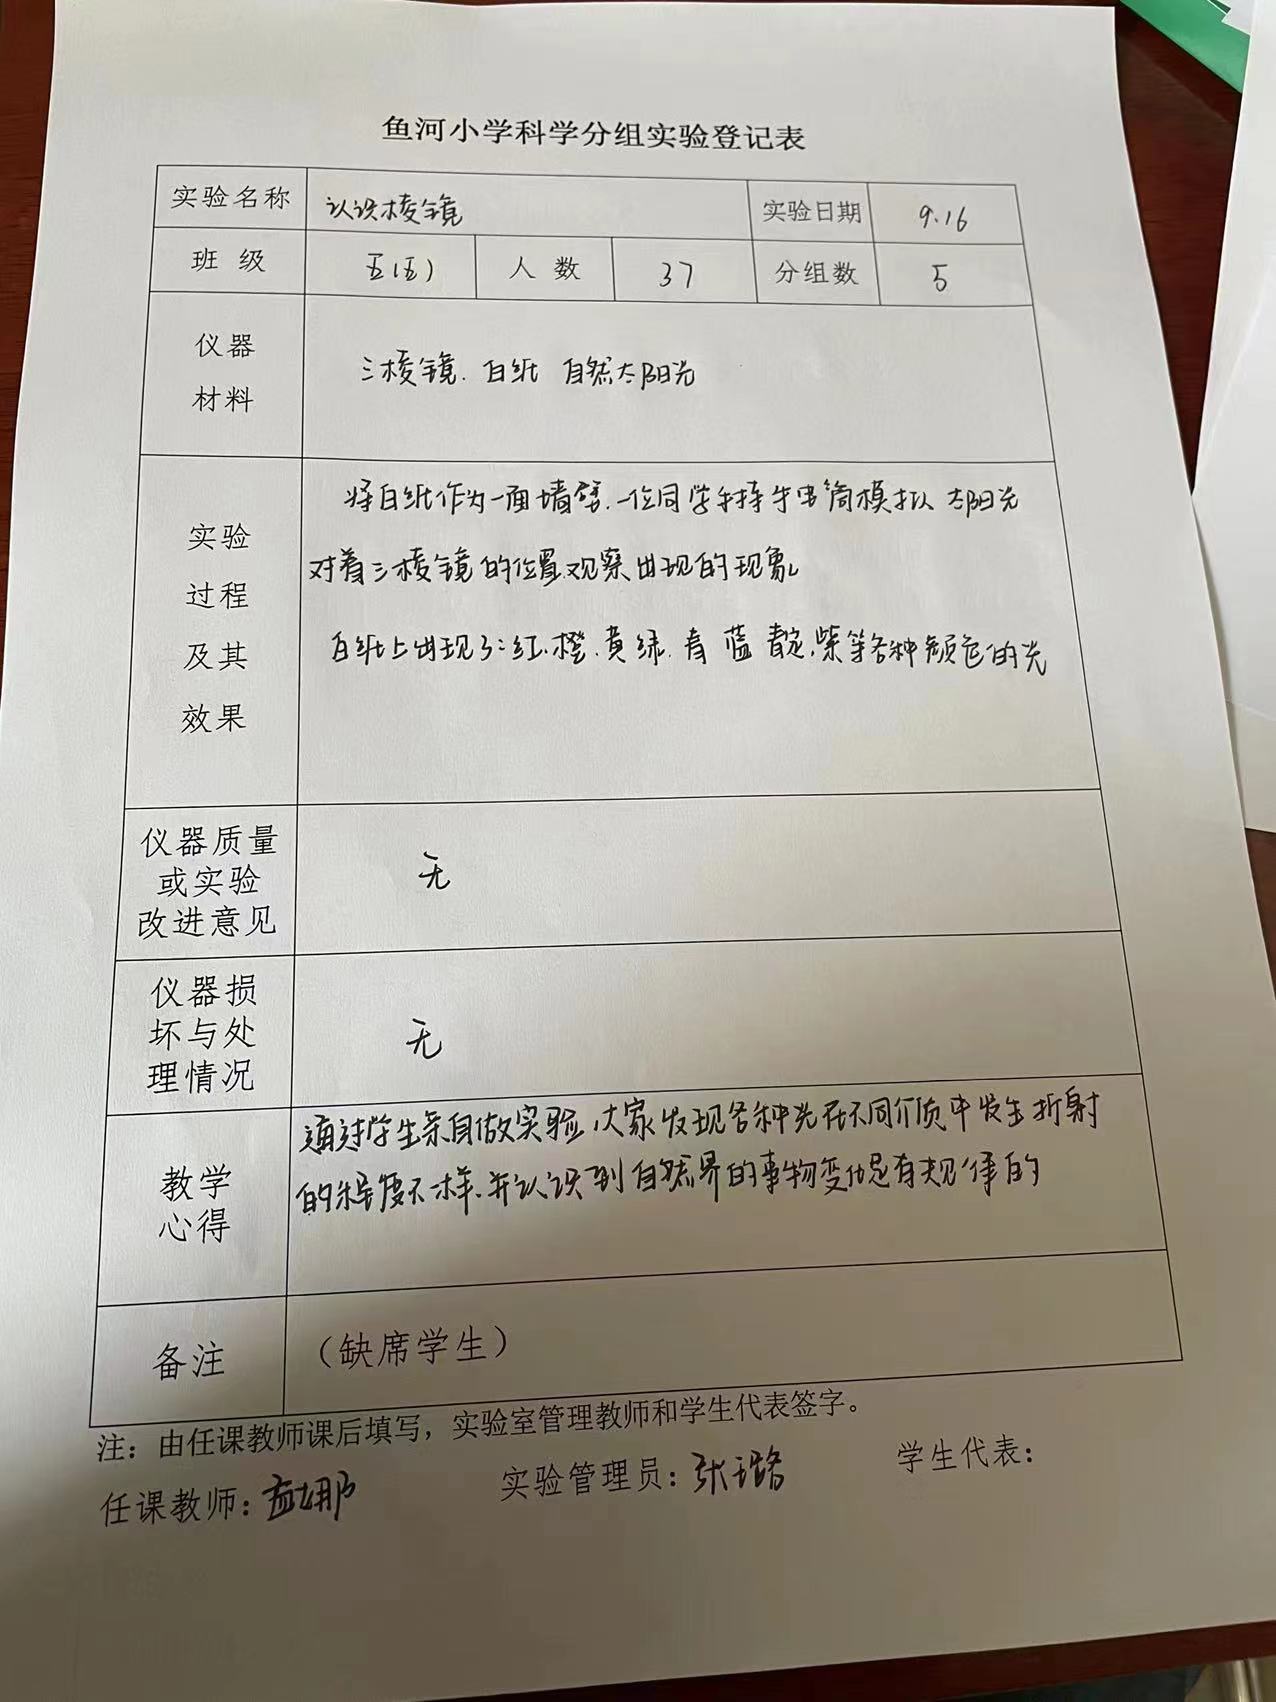 鱼河小学科学分组实验登记表
实验名称 认识棱镜 实验日期 9.16
班 级 五(五) 人 数 37 分组数 5
仪器
材料
三棱镜. 白纸 自然太阳光
实验
过程
及其
效果
将白纸作为一面墙壁.一位同学手持手电筒模拟太阳光
对着三棱镜的位置.观察出现的现象
白纸上出现了:红.橙.黄绿.青 蓝 靛.紫等各种颜色的光
仪器质量
或实验
改进意见
无
仪器损
坏与处
理情况
无
教学
心得
通过学生亲自做实验,大家发现各种光在不同介质中发生折射
的程度不一样.并认识到自然界的事物变化是有规律的
备注 (缺席学生)
注：由任课教师课后填写，实验室管理教师和学生代表签字。
任课教师: 实验管理员: 张璐 学生代表: